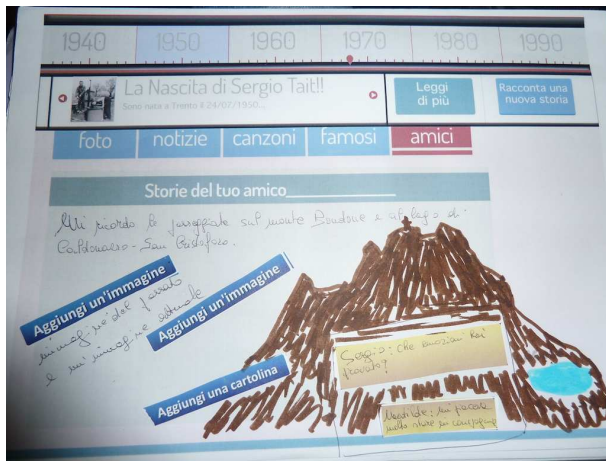 1940 1950 1960 1970 1980 1990
La Nascita di Sergio Tait!!
Sono nata a Trento il 24/07/1950...
Leggi
di più
Racconta una
nuova storia
foto notizie canzoni famosi amici
Storie del tuo amico____________
Mi ricordo le passeggiate sul monte Bondone e al lago di
Caldonazzo - San Cristoforo.
Aggiungi un'immagine
un'immagine del passato
e un'immagine attuale
Aggiungi un'immagine
Aggiungi una cartolina
Sergio: che emozioni hai
provato?
mi piaceva
molto stare in compagnia